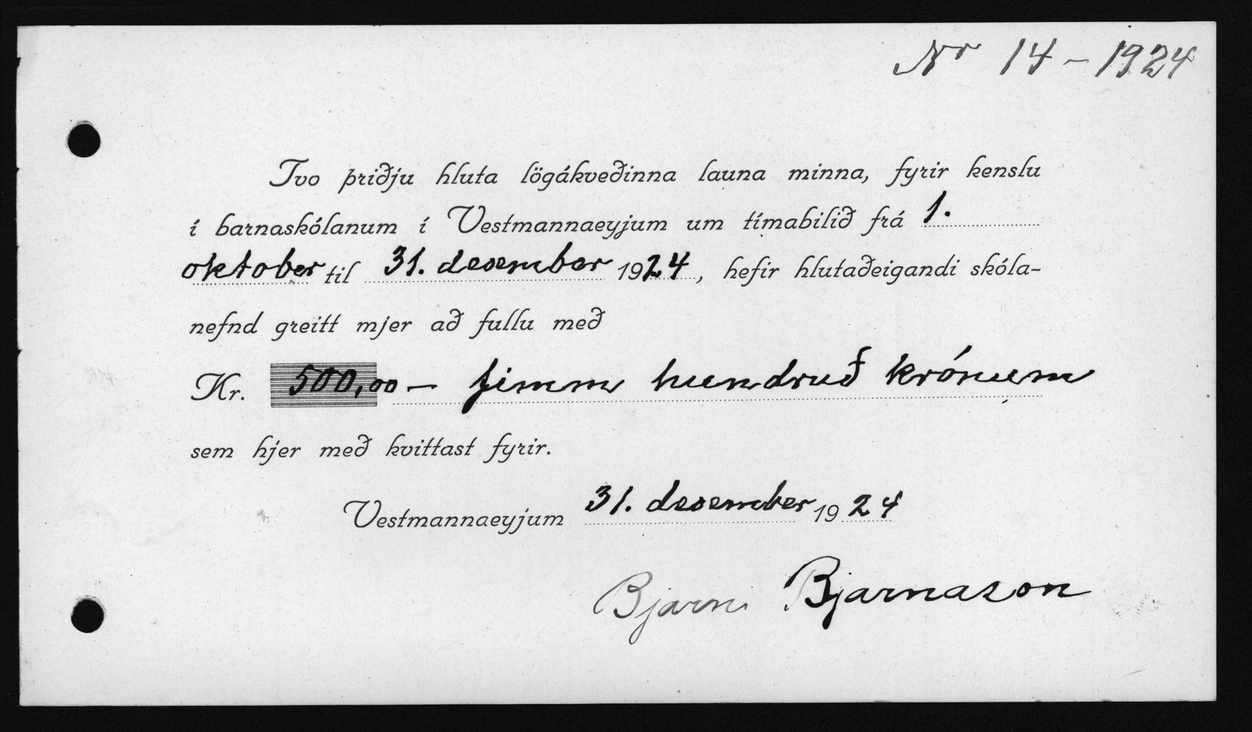 Nr 14 - 1924
Tvo þriðju hluta lögákveðinna launa minna, fyrir kenslu
í barnaskólanum í Vestmannaeyjum um tímabilið frá 1.
oktober til 31. desember 1924, hefir hlutaðeigandi skóla-
nefnd greitt mjer að fullu með
Kr. 500,00 — fimm hundruð krónum
sem hjer með kvittast fyrir.
Vestmannaeyjum 31. desember 1924
Bjarni Bjarnason